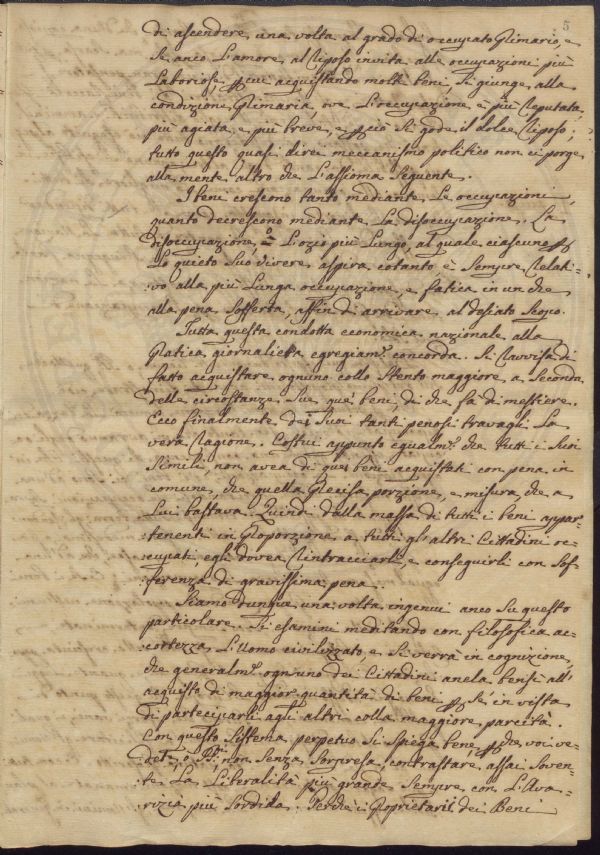 5
di ascendere una volta al grado di occupato Primario, e
se anco l'amore al riposo invita alle occupazioni più
laboriose, per cui acquistando molti beni, si giunge alla
condizione Primaria, ove l'occupazione è più reputata,
più agiata, e più breve, e perciò si gode il dolce riposo;
tutto questo quasi direi meccanismo politico non ci porge
alla mente altro che l'assioma seguente.
I beni crescono tanto mediante le occupazioni,
quanto decrescono mediante la disoccupazione. La
disoccupazione, o l'ozio più lungo, al quale ciascuno per
lo quieto suo vivere aspira cotanto è sempre relati-
:vo alla più lunga occupazione, e fatica in un che
alla pena sofferta, affin di arrivare al desiato scopo.
Tutta questa condotta economica nazionale alla
Pratica giornaliera egregiam.e concorda. Si ravvisa di
fatto acquistare ognuno collo stento maggiore, a seconda
delle circostanze sue que' beni, di che fa di mestiere.
Ecco finalmente de' suoi tanti penosi travagli la
vera ragione. Costui appunto egualm.e che tutti i suoi
simili, non avea di ques beni acquistati con pena in
comune, che quella precisa porzione, e misura che a
lui bastava. Quindi dalla massa di tutti i beni appar-
:tenenti in proporzione a tutti gl'altri Cittadini oc-
:cupati, egli dovea rintracciarli, e conseguirli con sof-
:ferenza di gravissima pena.
Siamo dunque una volta ingenui anco su questo
particolare. Si esamini meditando con filosofica ac-
:cortezza l'Uomo civilizzato, e si verrà in cognizione,
che generalm.e ogn'uno dei Cittadini anela bensì all'
acquisto di maggior quantità di beni per sé, in vista
di parteciparli agli altri colla maggiore parcità.
Con questo sistema perpetuo si spiega bene, perche voi ve-
:dete, o non senza sorpresa contrastare assai soven-
:te la liberalità più grande sempre con l'Ava-
:rizia più sordida. Perche i Proprietarii dei Beni